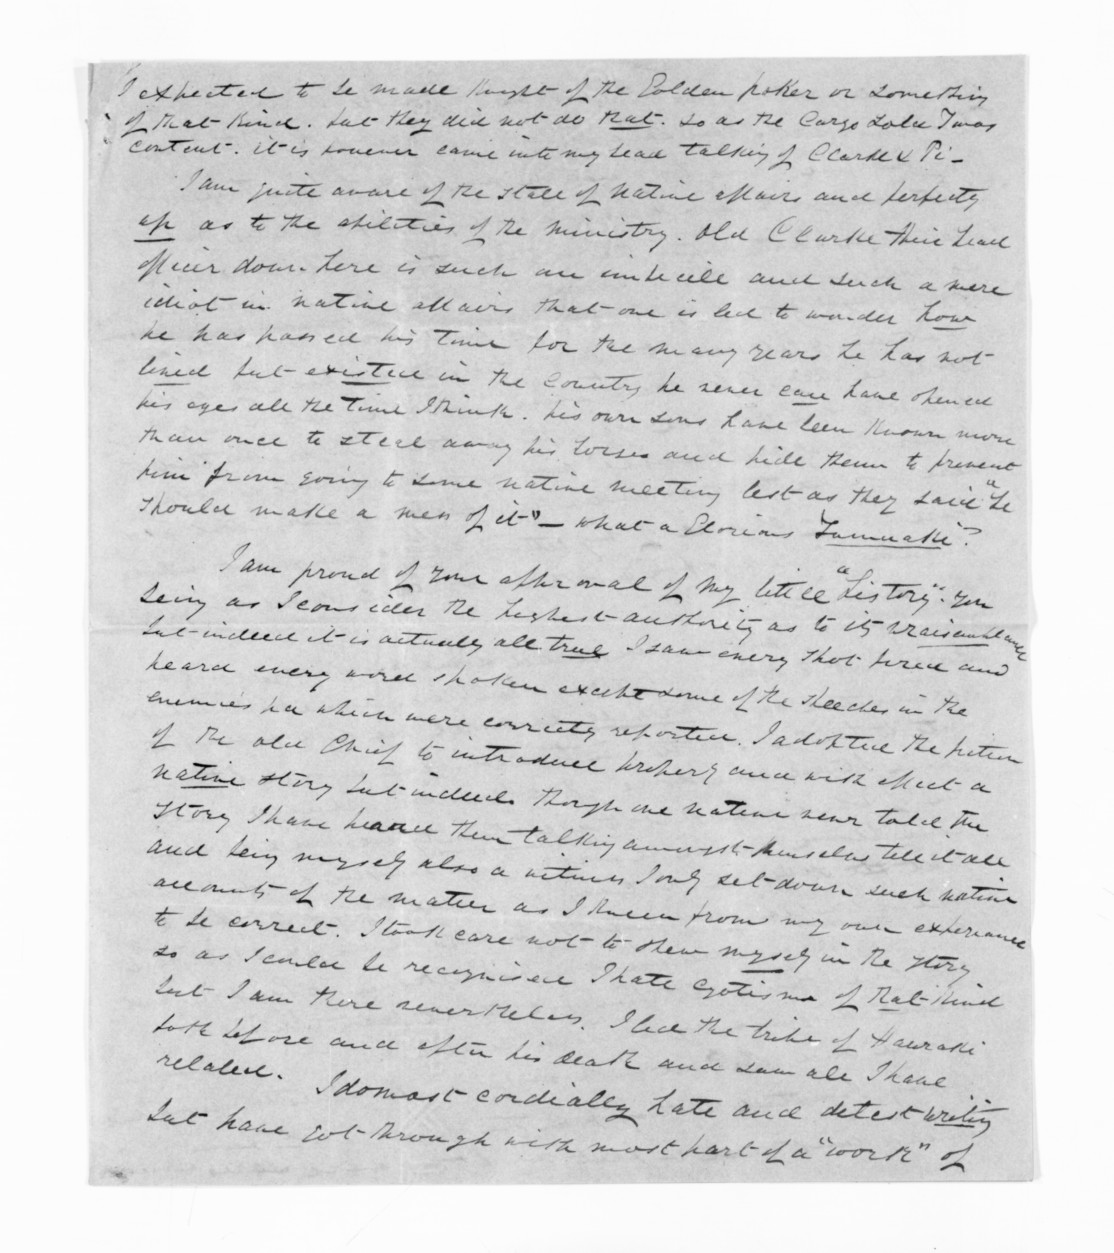 I expected to be made Knight of the Golden poker or something
of that Kind. but they did not do that. so as the Cargo sold I was
content. it is however came into my head talking of Clarke & Pi—
I am quite aware of the state of native affairs and perfectly
up as to the abilities of the ministry. Old Clarke their head
officer down here is such an imbecile and such a mere
idiot in native affairs that one is led to wonder how
he has passed his time for the many years he has not
lived but existed in the Country he never can have opened
his eyes all the time I think. his own sons have been Known more
than once to steal away his horses and hide them to prevent
him from going to some native meeting lest as they said "he
should make a mess of it" — what a Glorious Tumuaki?
I am proud of your approval of my little "history". you
being as I consider the highest authority as to its vraisemblance
but indeed it is actually all true I saw every shot fired and
heard every word spoken except some of the speeches in the
enemies pa which were correctly reported. I adopted the fiction
of the old Chief to introduce properly and with effect a
native story but indeed though one native never told the
story I have heard them talking amongst themselves tell it all
and being myself also a witness I only set down such native
accounts of the matter as I knew from my own experience
to be correct. I took care not to shew myself in the story
so as I could be recognised I hate egotism of that Kind
but I am there nevertheless. I led the tribe of Hauraki
both before and after his death and saw all I have
related. I do most cordially hate and detest writing
but have got through with most part of a "work" of